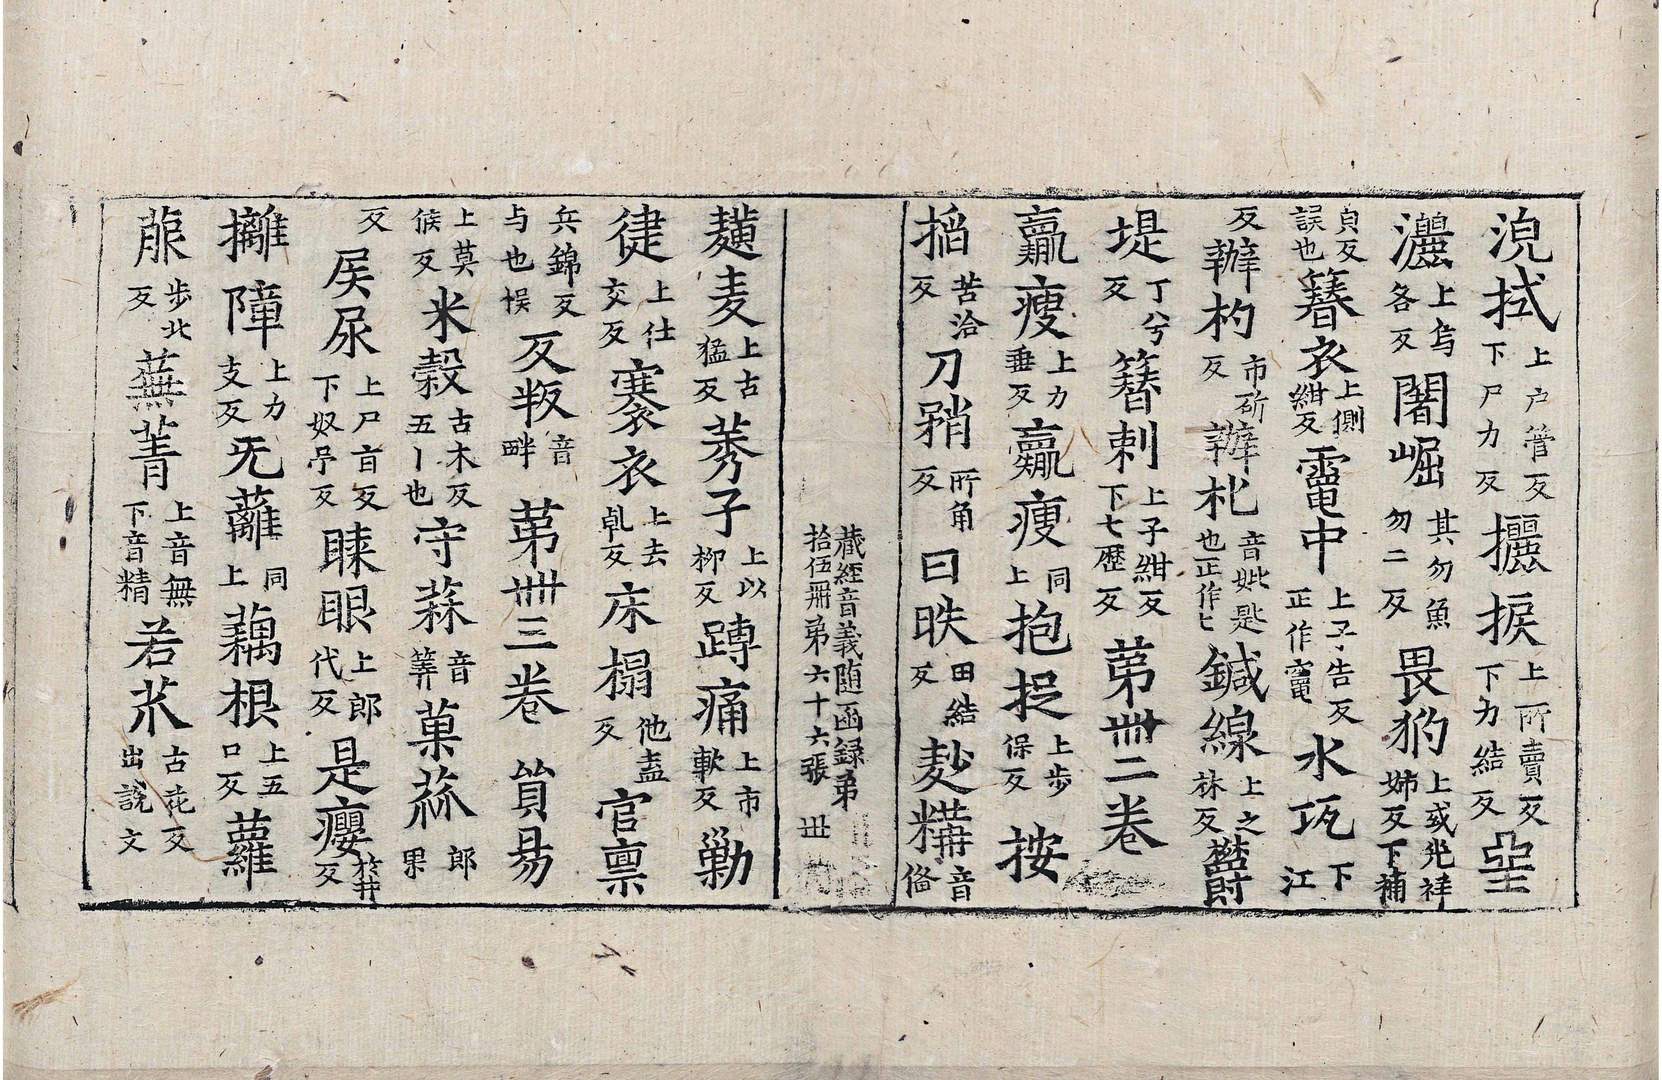 浼拭上户管反下尸力反攦捩上所賣反下力結反㘸
灅上烏各反闍崛其勿魚勿二反畏犳上或兆祥姊反下補
貞反誤也簮衣上側紺反䨓中上子告反正作竈水㼚下江
反辦杓市斫反辦朼音妣匙也正作匕鍼線上之林反
堤丁兮反簮刺上子紺反下七歷反苐卌二卷
羸瘦上力垂反羸瘦同上抱捉上步保反按
搯苦洽反刀矟所角反曰昳田結反麨糒音俻
藏經音義随函録弟拾伍冊弟六十六張 丗
䵃麦上古猛反莠子上以柳反蹲痛上市軟反勦
徤上仕交反褰衣上去乹反床榻他盍反官禀
兵錦反与也悮反叛音畔苐卌三卷 篢昜
上莫候反米穀古木反五丨也守蒜音筭菓蓏郎果
反屎尿上尸旨反下奴吊反睞眼上郎代反是癭於井反
攡障上力支反旡蘺同上藕根上五口反蘿
菔步北反蕪菁上音無下音精若苿古花反出說文